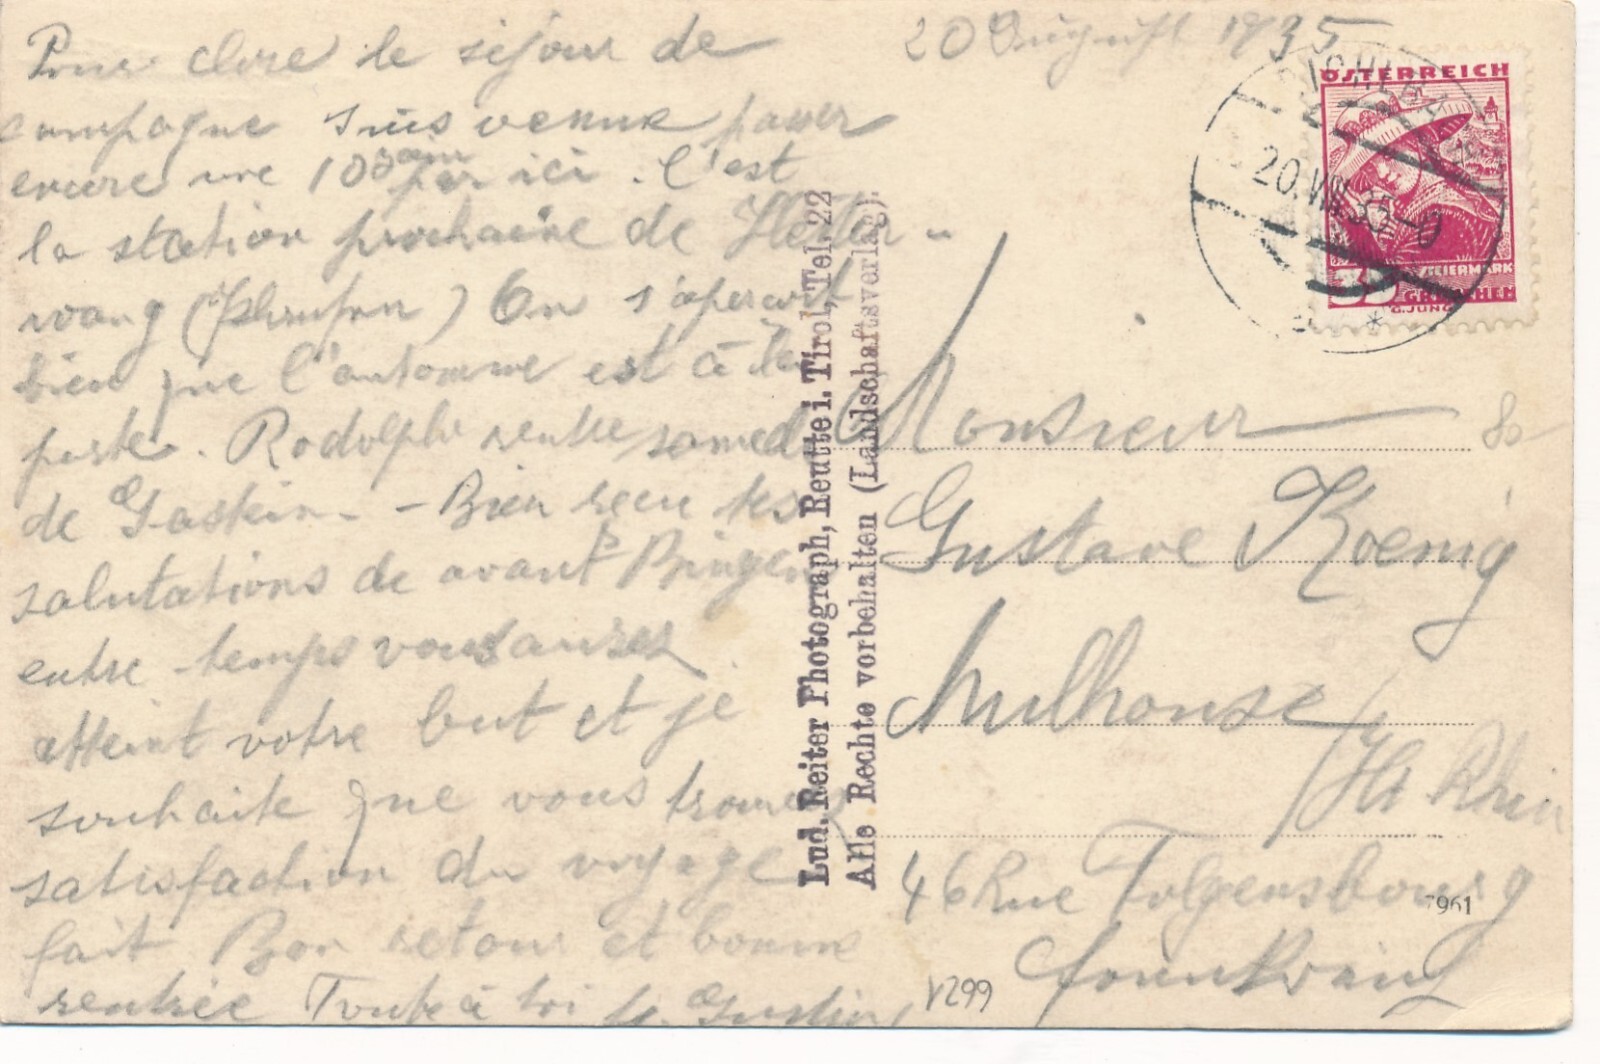 20 August 1935
Pour clore le séjour de
campagne suis venue passer
encore une 10aine par ici. C'est
la station prochaine de
wang On s'aperçoit
bien que l'automne est à la
porte. Rodolphe rentre samedi
de Gastein. - Bien reçu tes
salutations de avant Bingen
entre temps vous aurez
atteint votre but et je
souhaite que vous trouvez
satisfaction du voyage
fait Bon retour et bonne
rentrée Toute à toi
Lud. Reiter Photograph, Reutte i. Tirol, Tel. 22
Alle Rechte vorbehalten (Landschaftsverlag).
ÖSTERREICH
STEIERMARK
35 GROSCHEN
G. JUNG
20.VIII.35
Monsieur
Gustave Koenig
Mulhouse
/Ht Rhin
46 Rue Folgensbourg
80
7961
V299